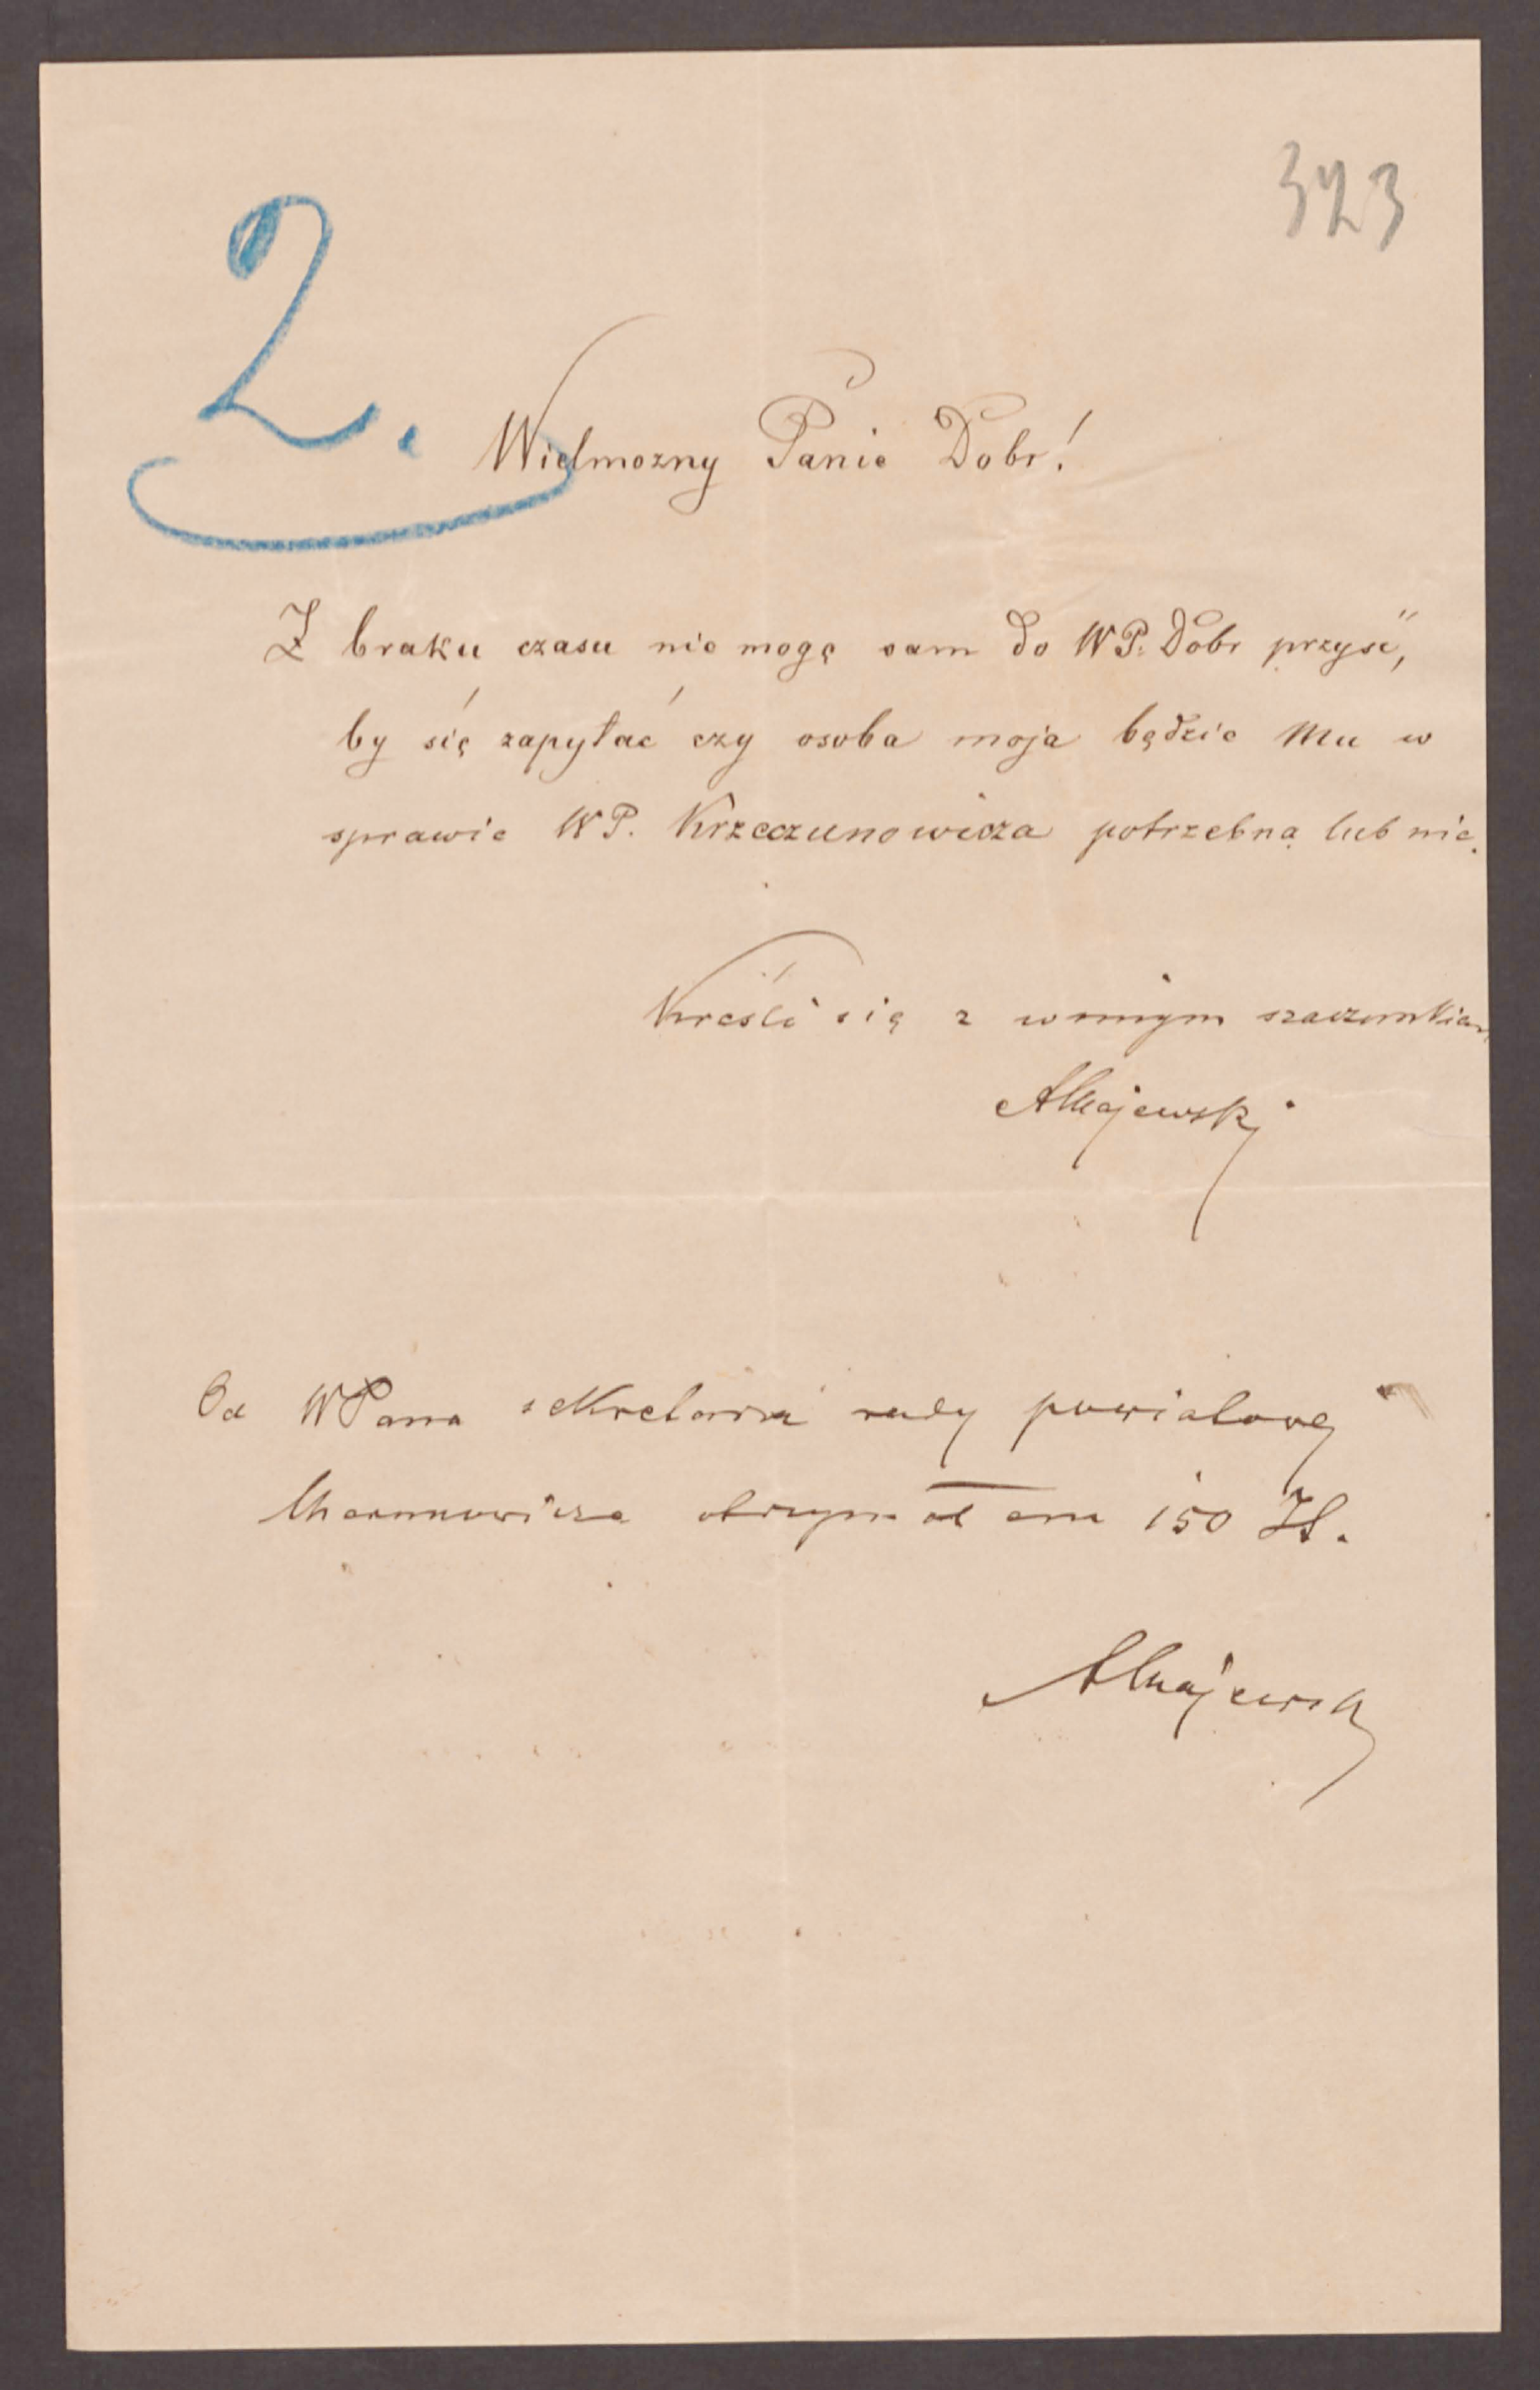 323
2.
Wielmozny Panie Dobr!
Z braku czasu nie mogę sam do WP. Dobr przyść,
by się zapytać czy osoba moja będzie Mu w
sprawie WP. Krzeczunowicza potrzebną lub nie.
Kreśli się z winnym szacunkiem
AMajewski
Od WPana sekretarza rady powiatowej
otrzymałem 150 Zł.
AMajewski